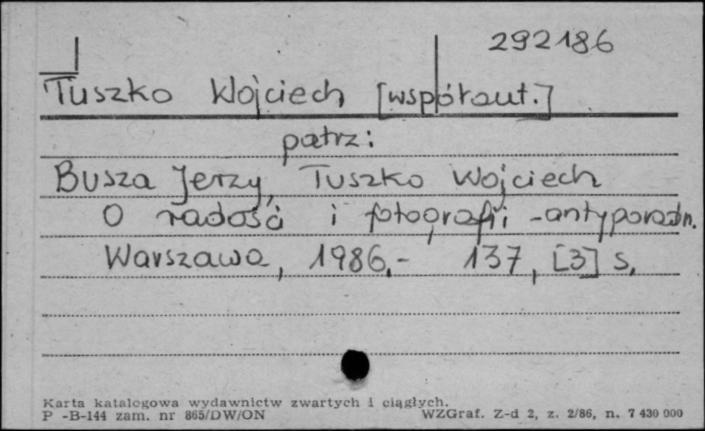 292186
Tuszko Wojciech [współaut.]
patrz:
Busza Jerzy, Tuszko Wojciech
O radość i fotografii -antyporadn.
Warszawa, 1986.- 137, [3] s.
Karta katalogowa wydawnictw zwartych i ciągłych.
P -B-144 zam. nr 865/DW/ON WZGraf. Z-d 2, z. 2/86, n. 7 430 000